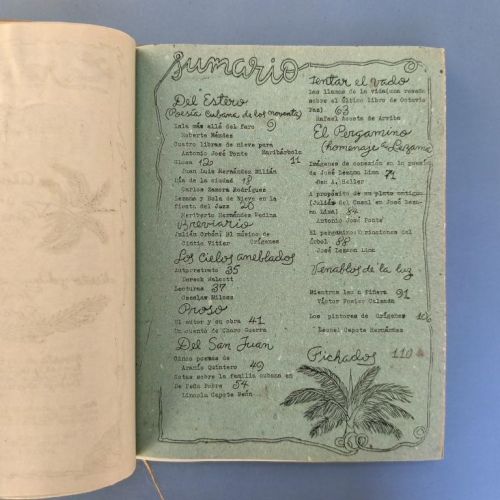 Sumario
Del Estero
(Poesía Cubana de los noventa)
Isla más allá del faro 9
Roberto Méndez
Cuatro libros de nieve para
Antonio José Ponte Maribárbola
Glosa 120 11
Juan Luis Hernández Milián
Día de la ciudad 18
Carlos Zamora Rodríguez
Lezama y Bola de Nieve en la
fiesta del Jazz 20
Heriberto Hernández Medina
Breviario
Julián Orbón: El músico de
Cintio Vitier Orígenes
Los Cielos aneblados
Autorretrato 35
Dereck Walcott
Lecturas 37
Czeslaw Milosz
Proso
El autor y su obra 41
Un cuento de Charo Guerra
Del San Juan
Cinco poemas de
Aramís Quintero 49
Notas sobre la familia cubana en
De Peña Pobre 54
Lincoln Capote Peón
Tentar el vado
Las llamas de la vida(una reseña
sobre el último libro de Octavio
Paz) 63
Rafael Acosta de Arriba
El Pergamino
(homenaje a Lezama
Imágenes de conexión en la poesía
de José Lezama Lima 71
Ben A. Heller
A propósito de un plato antiguo
(Julián del Casal en José Leza-
ma Lima) 84
Antonio José Ponte
El pergamino: Venablos de la luz
Mientras lee a Piñera 91
Víctor Fowler Calzada
Los pintores de Orígenes
Leonel Capote Hernández
Fichados 110